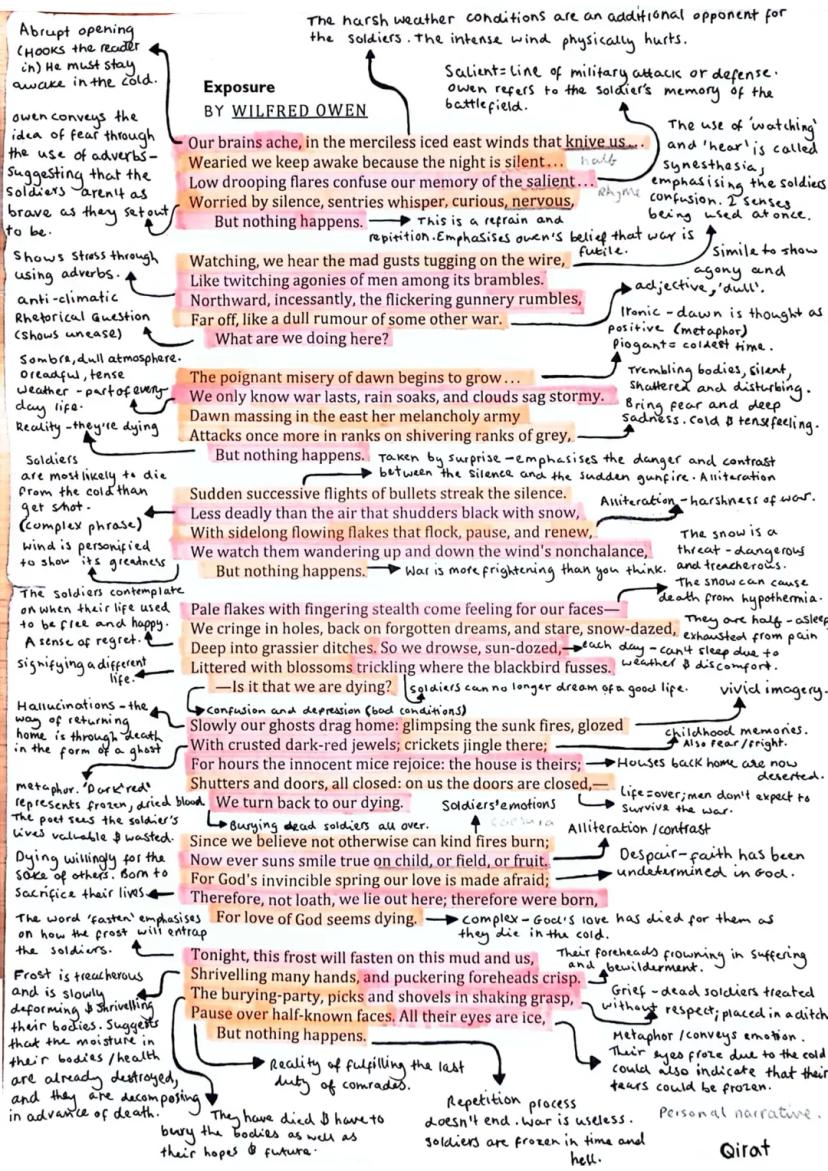 Abrupt opening
(HOOKS the reader
in) He must stay
awake in the cold.
The harsh weather conditions are an additional opponent for
the soldiers. The intense wind physically hurts.
Salient= Line of military attack or defense.
Owen refers to the soldier's memory of the
battlefield.
Exposure
BY WILFRED OWEN
owen conveys the
idea of fear through
the use of adverbs-
suggesting that the
soldiers aren't as
brave as they set out
to be.
The use of 'watching'
and 'hear' is called
synesthesia,
emphasising the soldiers
confusion. 2 senses
being used at once.
Our brains ache, in the merciless iced east winds that knive us...
Wearied we keep awake because the night is silent... half
Low drooping flares confuse our memory of the salient...
Rhyme
Worried by silence, sentries whisper, curious, nervous,
But nothing happens.
This is a refrain and
repitition. Emphasises owen's belief that war is
futile.
Shows stress through
using adverbs.
Watching, we hear the mad gusts tugging on the wire,
Like twitching agonies of men among its brambles.
Northward, incessantly, the flickering gunnery rumbles,
Far off, like a dull rumour of some other war.
What are we doing here?
Simile to show
agony and
adjective, 'dull'.
anti-climatic
Rhetorical Question
(shows unease)
Ironic - dawn is thought as
positive (metaphor)
Piogant= coldest time.
Sombre, dull atmosphere.
Dreadful, tense
weather - part of every-
day life.
Reality - they're dying
The poignant misery of dawn begins to grow...
We only know war lasts, rain soaks, and clouds sag stormy.
Dawn massing in the east her melancholy army
Attacks once more in ranks on shivering ranks of grey,
But nothing happens.
Trembling bodies, silent,
shattered and disturbing.
Bring fear and deep
sadness. Cold & tense feeling.
Taken by surprise - emphasises the danger and contrast
between the silence and the sudden gunfire. Alliteration
Soldiers
are most likely to die
from the cold than
get shot.
(complex phrase)
wind is personified
to show its greatness
Sudden successive flights of bullets streak the silence.
Less deadly than the air that shudders black with snow,
With sidelong flowing flakes that flock, pause, and renew,
We watch them wandering up and down the wind's nonchalance,
But nothing happens.
War is more frightening than you think.
Alliteration - harshness of war.
The snow is a
threat - dangerous
and treacherous.
The snow can cause
death from hypothermia.
The soldiers contemplate
on when their life used
to be free and happy.
A sense of regret.
Signifying a different
life.
Pale flakes with fingering stealth come feeling for our faces—
We cringe in holes, back on forgotten dreams, and stare, snow-dazed,
Deep into grassier ditches. So we drowse, sun-dozed,
Littered with blossoms trickling where the blackbird fusses.
—Is it that we are dying?
They are half-asleep
exhausted from pain
each day - can't sleep due to
weather & discomfort.
soldiers can no longer dream of a good life.
vivid imagery.
Confusion and depression (bad conditions)
Hallucinations - the
way of returning
home is through death
in the form of a ghost
Slowly our ghosts drag home: glimpsing the sunk fires, glozed
With crusted dark-red jewels; crickets jingle there;
For hours the innocent mice rejoice: the house is theirs;
Shutters and doors, all closed: on us the doors are closed,—
We turn back to our dying.
childhood memories.
Also fear/fright.
Houses back home are now
deserted.
Life=over; men don't expect to
survive the war.
metaphor. 'Dark red'
represents frozen, dried blood
The poet sees the soldier's
lives valuable & wasted.
Burying dead soldiers all over.
Soldiers' emotions
Caesura
Alliteration/contrast
Dying willingly for the
sake of others. Born to
sacrifice their lives
Since we believe not otherwise can kind fires burn;
Now ever suns smile true on child, or field, or fruit.
For God's invincible spring our love is made afraid;
Therefore, not loath, we lie out here; therefore were born,
For love of God seems dying.
Despair - faith has been
undetermined in God.
complex - God's love has died for them as
they die in the cold.
The word 'fasten' emphasises
on how the frost will entrap
the soldiers.
Tonight, this frost will fasten on this mud and us,
Shrivelling many hands, and puckering foreheads crisp.
The burying-party, picks and shovels in shaking grasp,
Pause over half-known faces. All their eyes are ice,
But nothing happens.
Their foreheads frowning in suffering
and bewilderment.
Grief - dead soldiers treated
without respect; placed in a ditch
Metaphor/conveys emotion.
Their eyes froze due to the cold
could also indicate that their
tears could be frozen.
Frost is treacherous
and is slowly
deforming & shrivelling
their bodies. Suggests
that the moisture in
their bodies/health
are already destroyed,
and they are decomposing
in advance of death.
Reality of fulfilling the last
duty of comrades.
They have died & have to
bury the bodies as well as
their hopes & future.
Repetition process
doesn't end. War is useless.
Soldiers are frozen in time and
hell.
Personal narrative.
Qirat